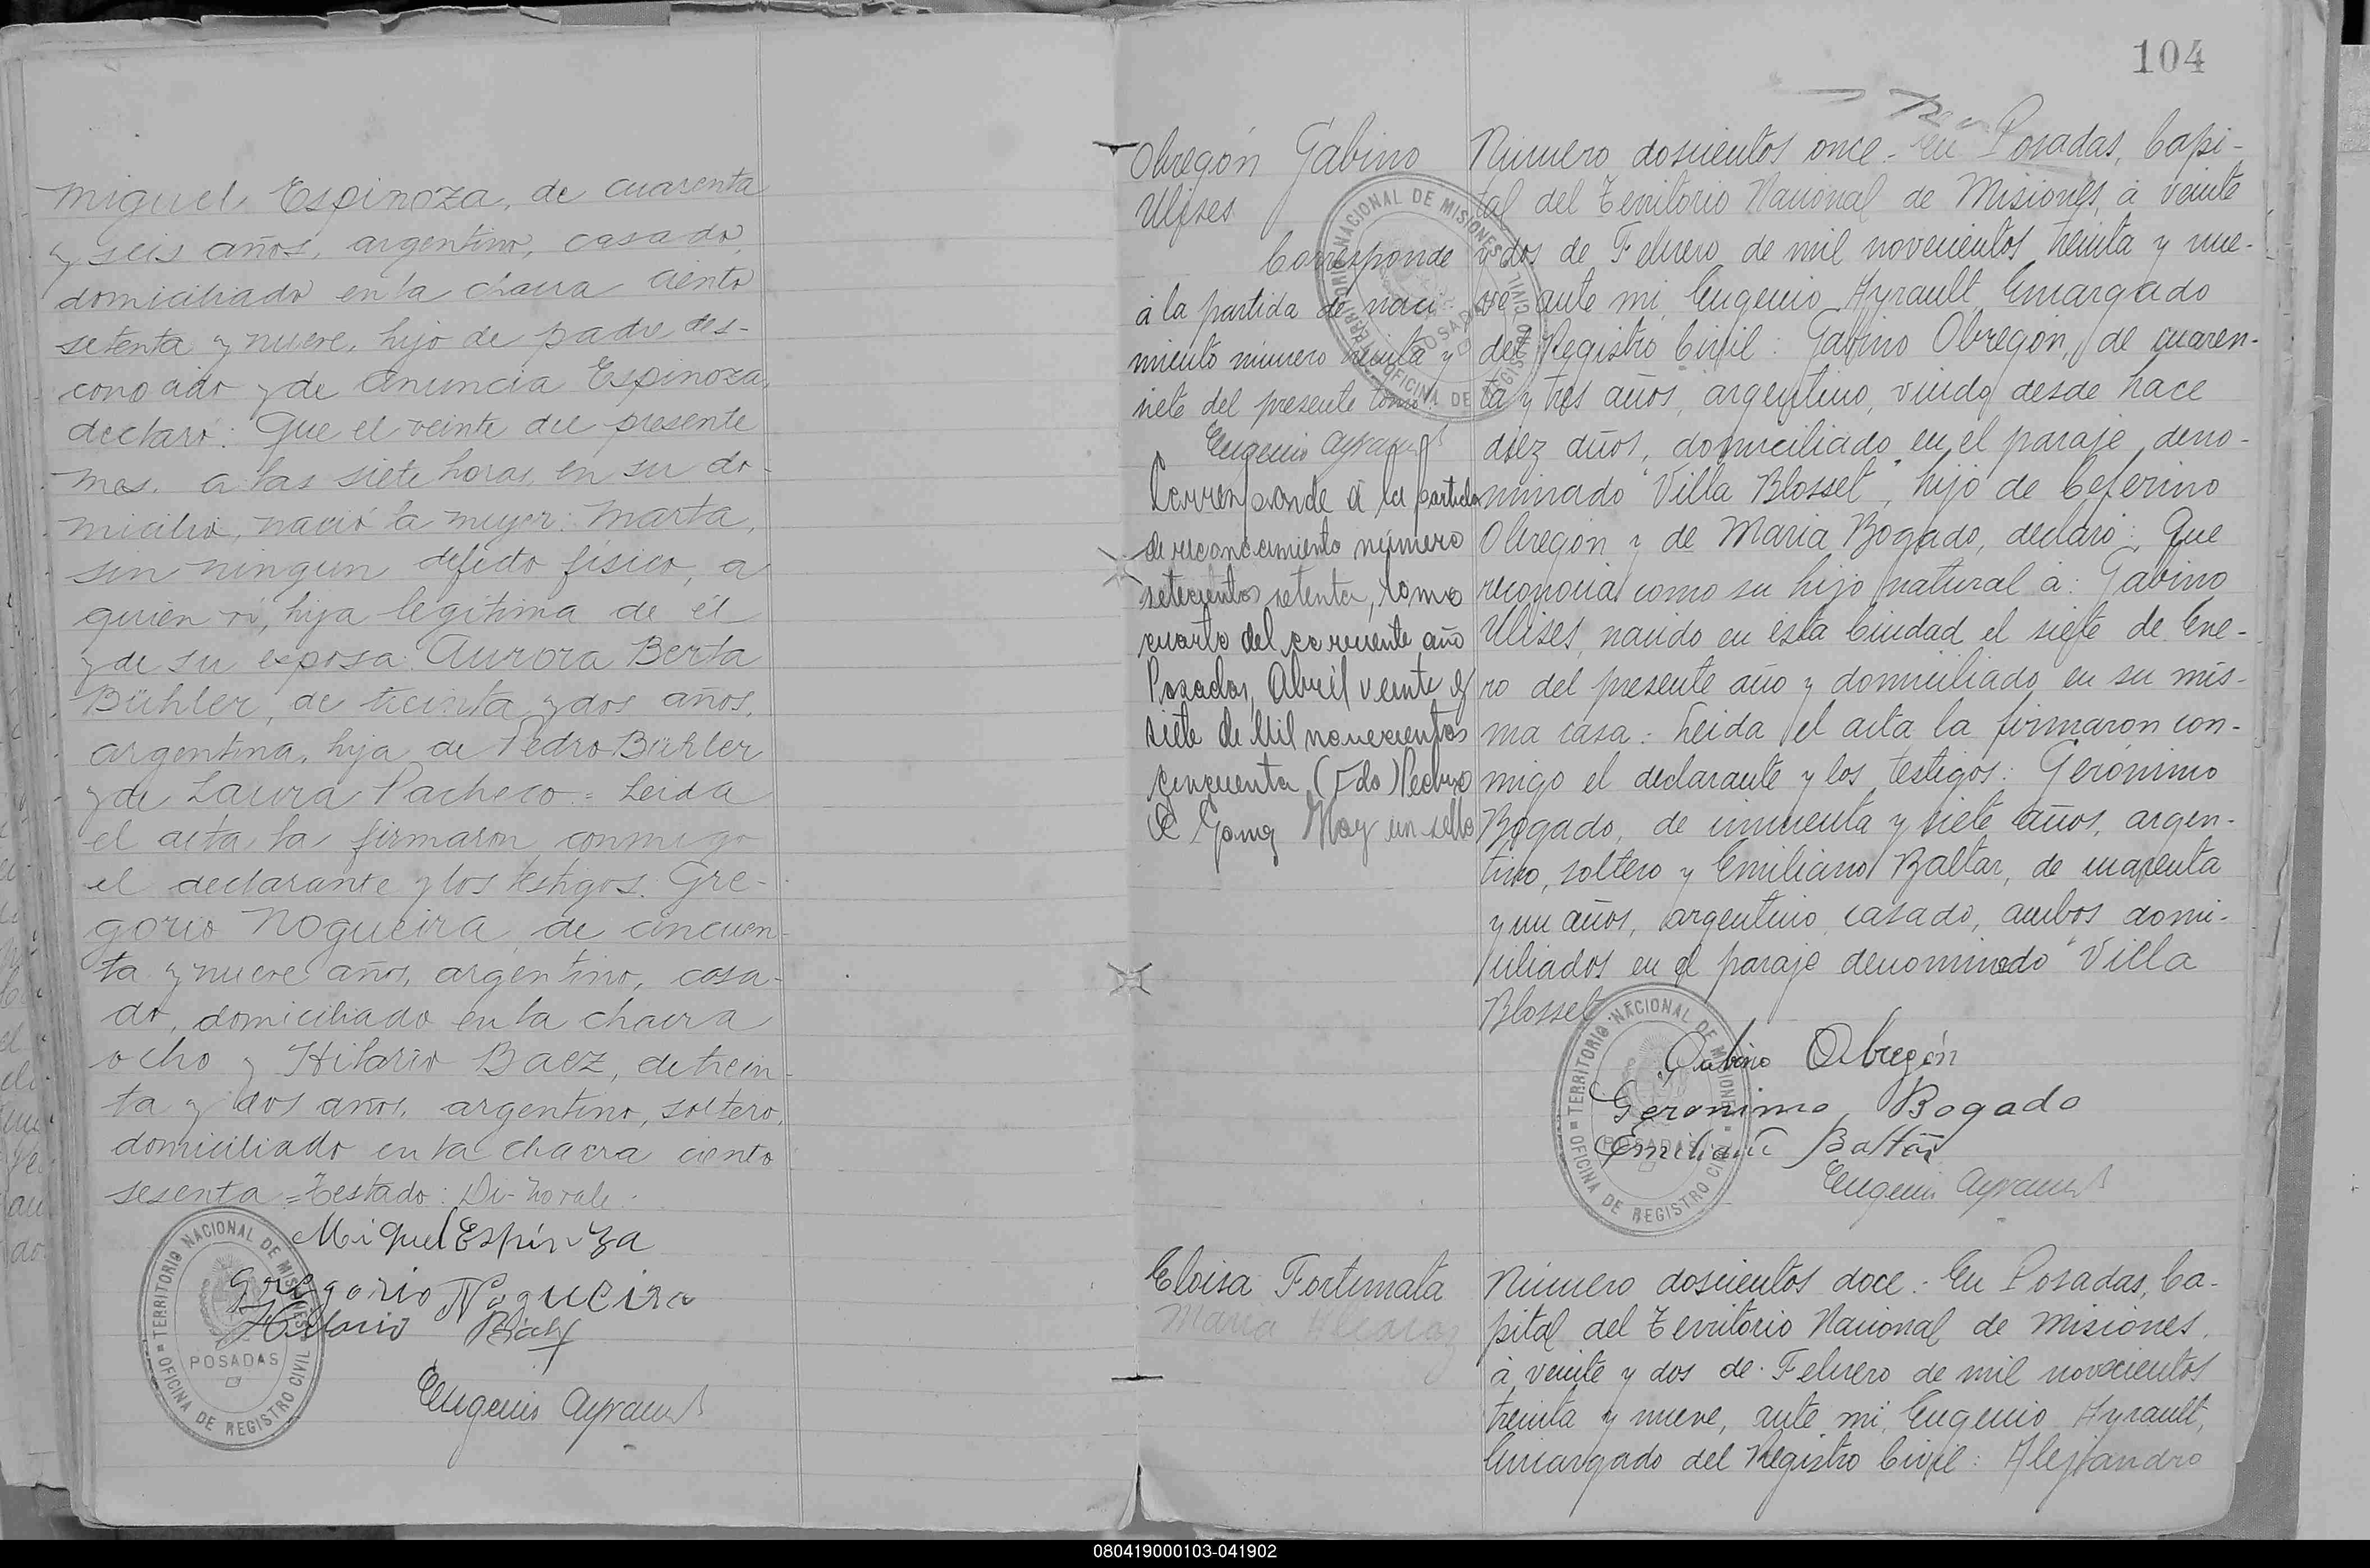 Miguel Espinoza, de cuarenta
y seis años, argentino, casado,
domiciliado en la chacra ciento
setenta y nueve, hijo de padre des-
conocido y de Anuncia Espinoza,
declaró: Que el veinte del presente
mes, a las siete horas, en su do-
micilio, nació la mujer: Marta,
sin ningun defecto físico, a
quien ví, hija legitima de él
y de su esposa: Aurora Berta
Bühler, de treinta y dos años,
argentina, hija de Pedro Bühler
y de Laura Pacheco = Leida
el acta, la firmaron conmigo
el declarante y los testigos: Gre-
gorio Nogueira, de cincuen-
ta y nueve años, argentino, casa-
do, domiciliado en la chacra
ocho y Hilario Baez, de trein-
ta y dos años, argentino, soltero,
domiciliado en la chacra ciento
sesenta = Testado: Di- no vale.
Miguel Espinoza
Gregorio Nogueira
Hilario Baez
Eugenio Ayrault
TERRITORIO NACIONAL DE MISIONES
POSADAS
OFICINA DE REGISTRO CIVIL
104
Obregón Gabino
Ulises
Corresponde
á la partida de naci
miento número treinta y
siete del presente tomo.
Eugenio Ayrault
Corresponde á la partida
de reconocimiento número
setecientos setenta, tomo
cuarto del corriente año
Posadas, Abril veinte y
siete de Mil novecientos
cincuenta (Fdo) Pedro
Hay un sello
Número doscientos once. En Posadas, Capi-
tal del Territorio Nacional de Misiones, á veinte
y dos de Febrero de mil novecientos treinta y nue-
ve, ante mí, Eugenio Ayrault, Encargado
del Registro Civil: Gabino Obregón, de cuaren-
ta y tres años, argentino, viudo desde hace
diez años, domiciliado en el paraje deno-
minado "Villa Blosset", hijo de Ceferino
Obregón y de María Bogado, declaró: Que
reconocía como su hijo natural á: Gabino
Ulises, nacido en ésta Ciudad el siete de Ene-
ro del presente año y domiciliado en su mis-
ma casa: Leida el acta, la firmaron con-
migo el declarante y los testigos: Gerónimo
Bogado, de cincuenta y siete años, argen-
tino, soltero y Emiliano Baltar, de cuarenta
y un años, argentino, casado, ambos domi-
ciliados en el paraje denominado "Villa
Blosset"
Gabino Obregón
Geronimo Bogado
Emiliano Baltar
Eugenio Ayrault
TERRITORIO NACIONAL DE MISIONES
POSADAS
OFICINA DE REGISTRO CIVIL
Eloisa Fortunata
Maria Alcaraz
Número doscientos doce: En Posadas, Ca-
pital del Territorio Nacional de Misiones,
á veinte y dos de Febrero de mil novecientos
treinta y nueve, ante mí, Eugenio Ayrault,
Encargado del Registro Civil: Alejandro
080419000103-041902